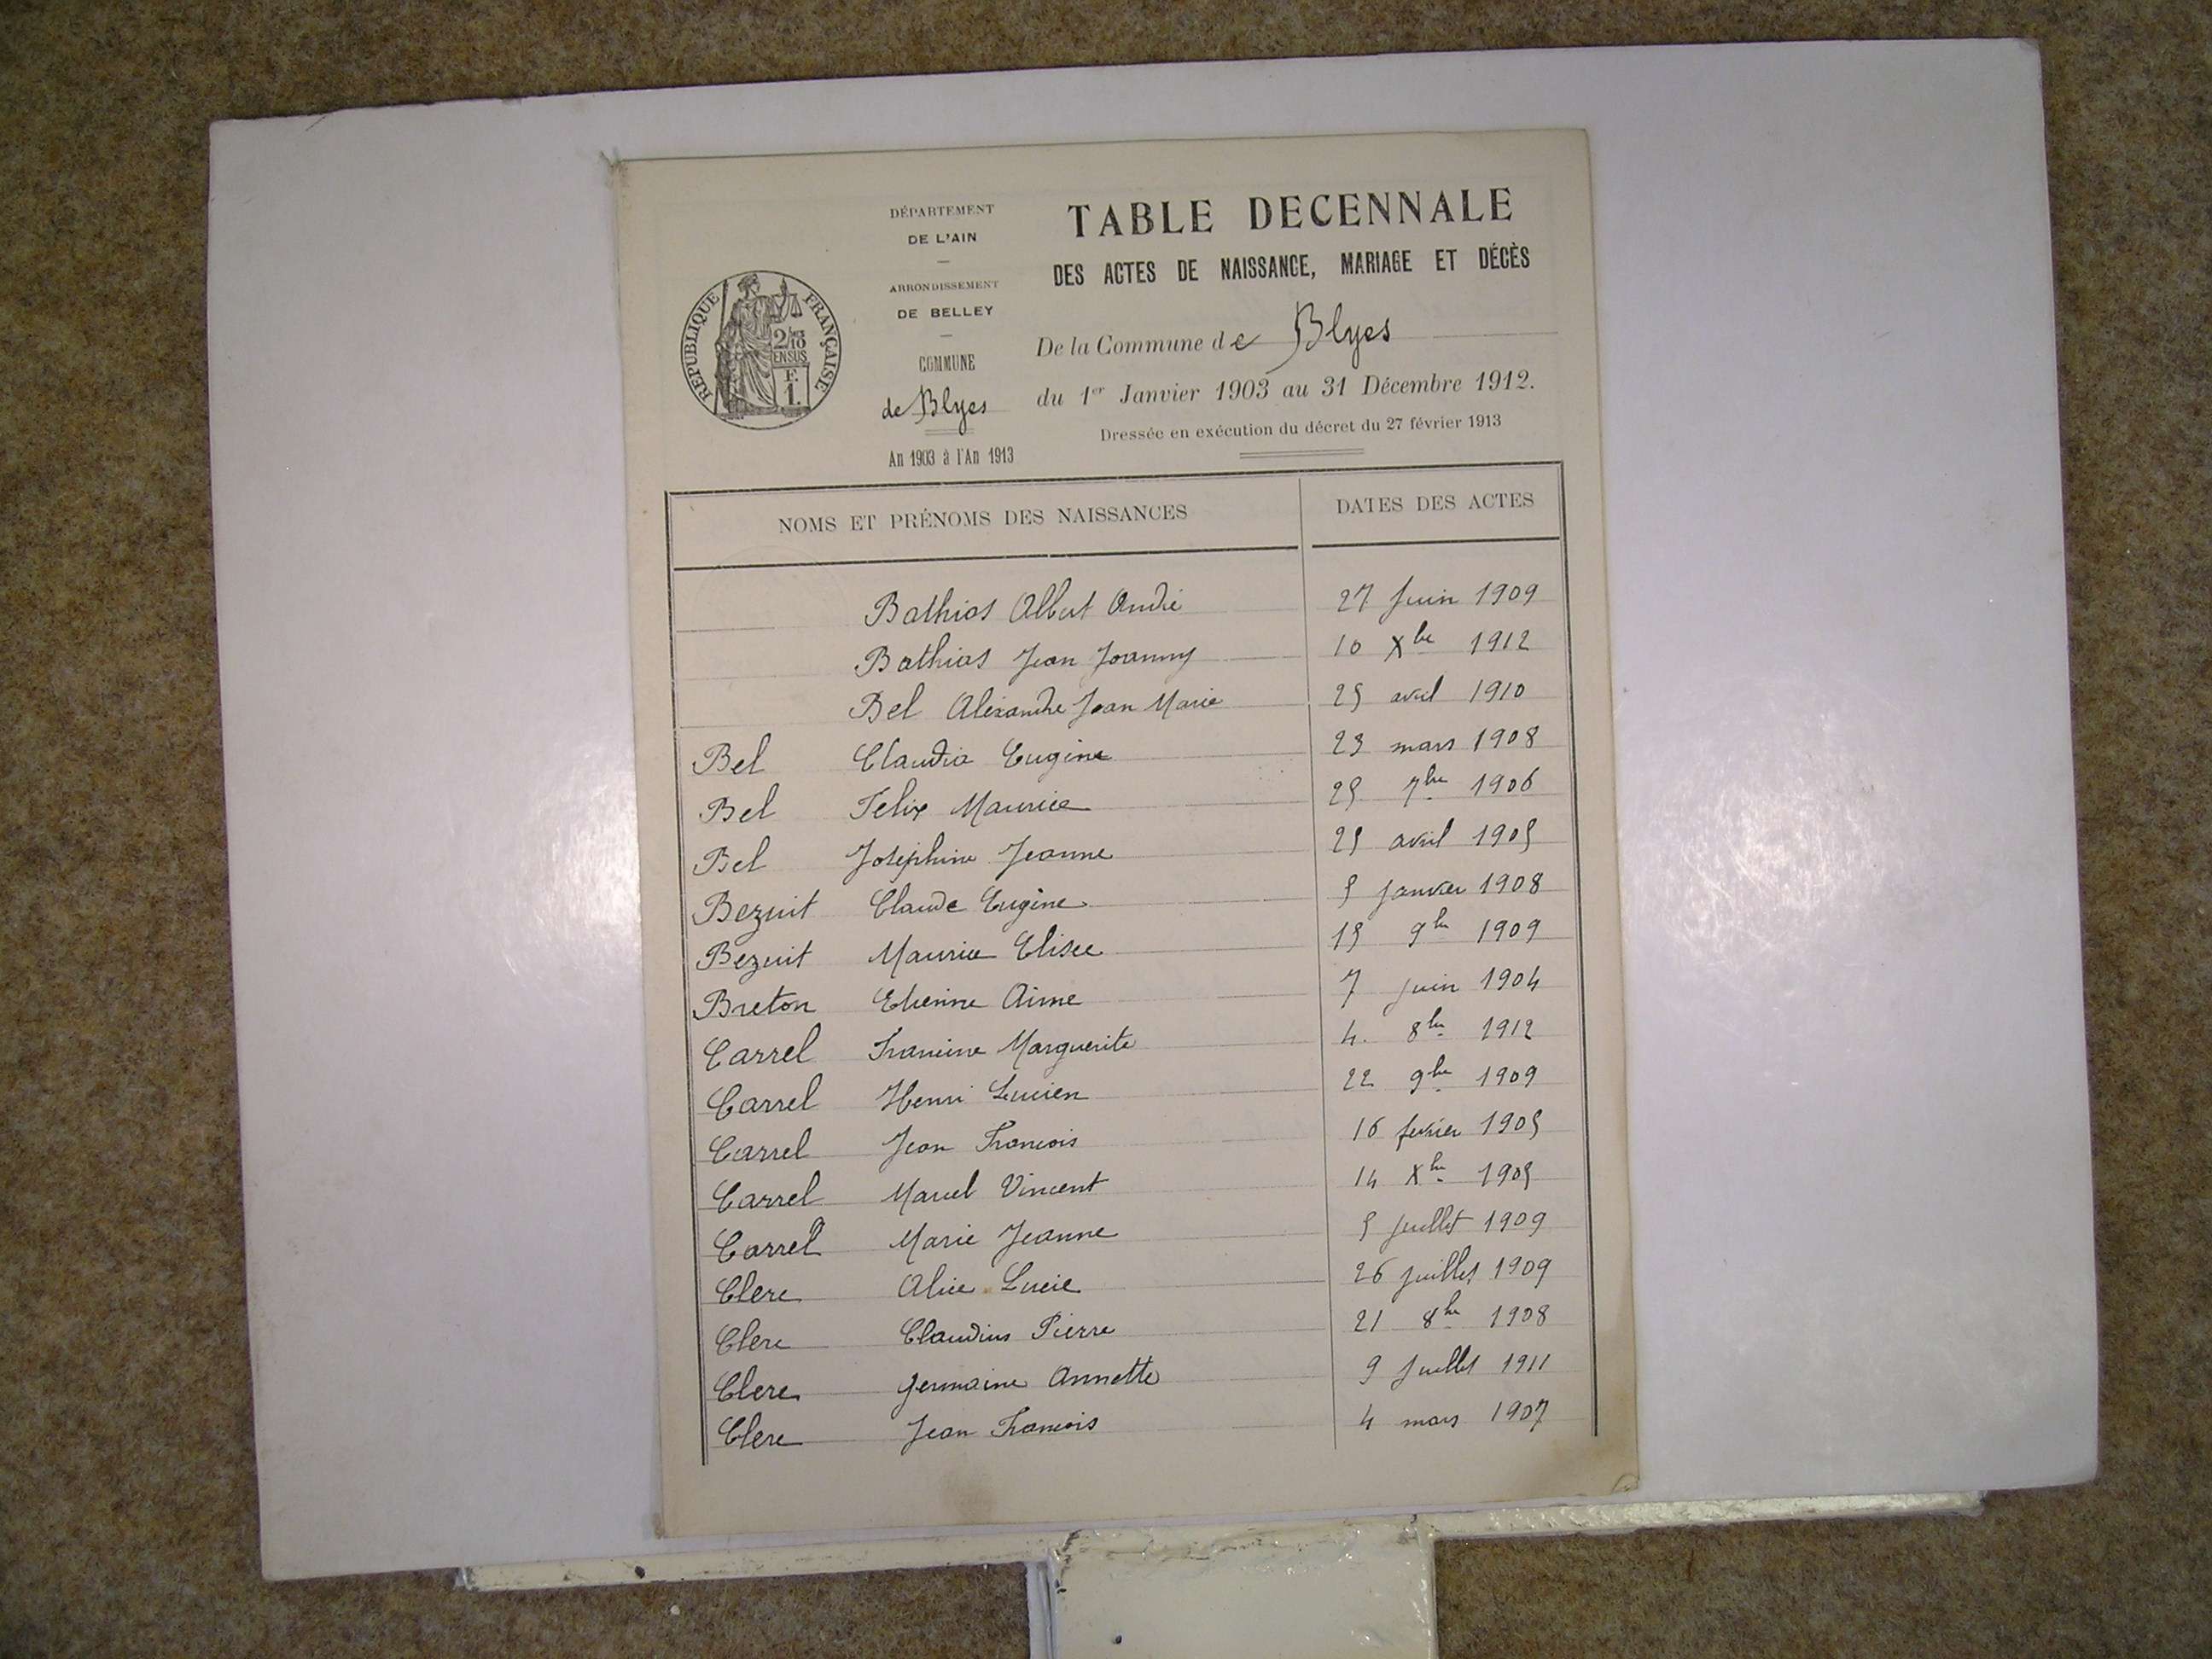 DÉPARTEMENT
DE L'AIN
ARRONDISSEMENT
DE BELLEY
COMMUNE
de Blyes
An 1903 à l'An 1913
RÉPUBLIQUE FRANÇAISE
2/10
EN SUS
F.
1.
TABLE DECENNALE
DES ACTES DE NAISSANCE, MARIAGE ET DÉCÈS
De la Commune de Blyes
du 1er Janvier 1903 au 31 Décembre 1912.
Dressée en exécution du décret du 27 février 1913
NOMS ET PRÉNOMS DES NAISSANCES DATES DES ACTES
Bathias Albert André 27 Juin 1909
Bathias Jean Joanny 10 Xbe 1912
Bel Alexandre Jean Marie 25 avril 1910
Bel Claudia Eugine 23 mars 1908
Bel Felix Maurice 25 7bre 1906
Bel Joséphine Jeanne 25 avril 1905
Bezuit Claude Eugine 5 Janvier 1908
Bezuit Maurice Elisee 15 9bre 1909
Breton Etienne Aime 7 juin 1904
Carrel Francine Marguerite 4. 8bre 1912
Carrel Henri Lucien 22 9bre 1909
Carrel Jean Francois 16 fevrier 1905
Carrel Marcel Vincent 14 Xbre 1905
Carrel Marie Jeanne 5 Juillet 1909
Clerc Alice Lucie 26 juillet 1909
Clerc Claudius Pierre 21 8bre 1908
Clerc Germaine Annette 9 Juillet 1911
Clerc Jean Francois 4 mars 1907